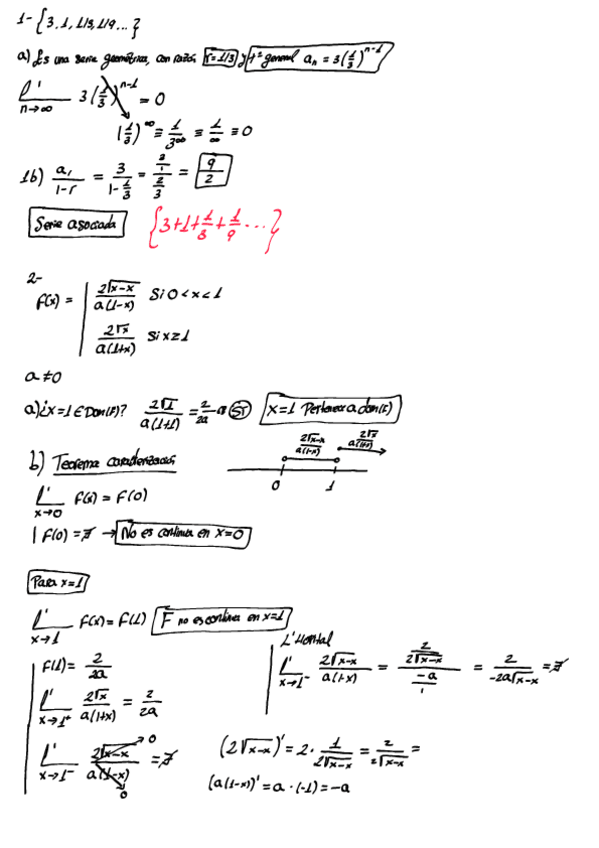 1- {3, 1, 1/3, 1/9 ...}
a) Es una serie geométrica, con razón r = 1/3 y tº general aₙ = 3(1/3)^(n-1)
lim n→∞ 3(1/3)^(n-1) = 0
(1/3)^∞ ≡ 1/3^∞ ≡ 1/∞ ≡ 0
1b) a₁/(1-r) = 3/(1-1/3) = (3/1)/(2/3) = 9/2
Serie asociada {3+1+1/3+1/9...}
2-
f(x) = | (2√x-x)/(a(1-x)) Si 0<x<1
(2√x)/(a(1+x)) Si x≥1
a≠0
a) ¿x=1 ∈ Dom(f)? (2√1)/(a(1+1)) = 2/2a → SI x=1 Pertenece a dom(f)
(2√x-x)/(a(1-x)) (2√x)/(a(1+x))
0 1
b) Teorema caracterización
lim x→0 f(x) = f(0)
| f(0) = ∄ → No es continua en x=0
Para x=1
lim x→1 f(x) = f(1) F no es continua en x=1
f(1) = 2/2a
lim x→1⁺ (2√x)/(a(1+x)) = 2/2a
lim x→1⁻ (2√x-x)/(a(1-x)) = ∄
0
0
L'Hopital
lim x→1⁻ (2√x-x)/(a(1-x)) = (2/(2√x-x))/(-a/1) = 2/(-2a√x-x) = ∄
(2√x-x)' = 2 · 1/(2√x-x) = 2/(2√x-x) =
(a(1-x))' = a · (-1) = -a